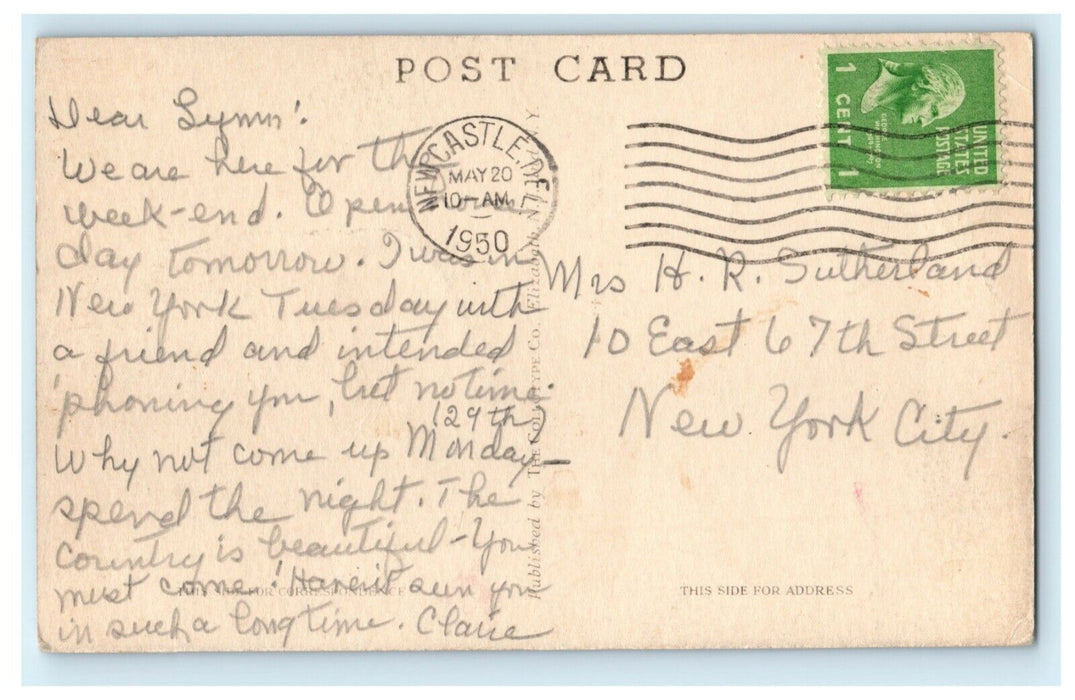 POST CARD
Dear Lynn:
We are here for the
week-end. Open
day tomorrow. I was in
New York Tuesday with
a friend and intended
'phoning you, but no time.
(29th)
Why not come up Monday—
spend the night. The
country is beautiful - You
must come! Haven't seen you
in such a long time. Claire
THIS SIDE FOR CORRESPONDENCE
Published by THE COLLOTYPE Co., Elizabeth, N. Y.
NEWCASTLE, ME
MAY 20
10 AM
1950
1 CENT 1
UNITED
STATES
POSTAGE
Mrs H. R. Sutherland
10 East 67th Street
New York City.
THIS SIDE FOR ADDRESS